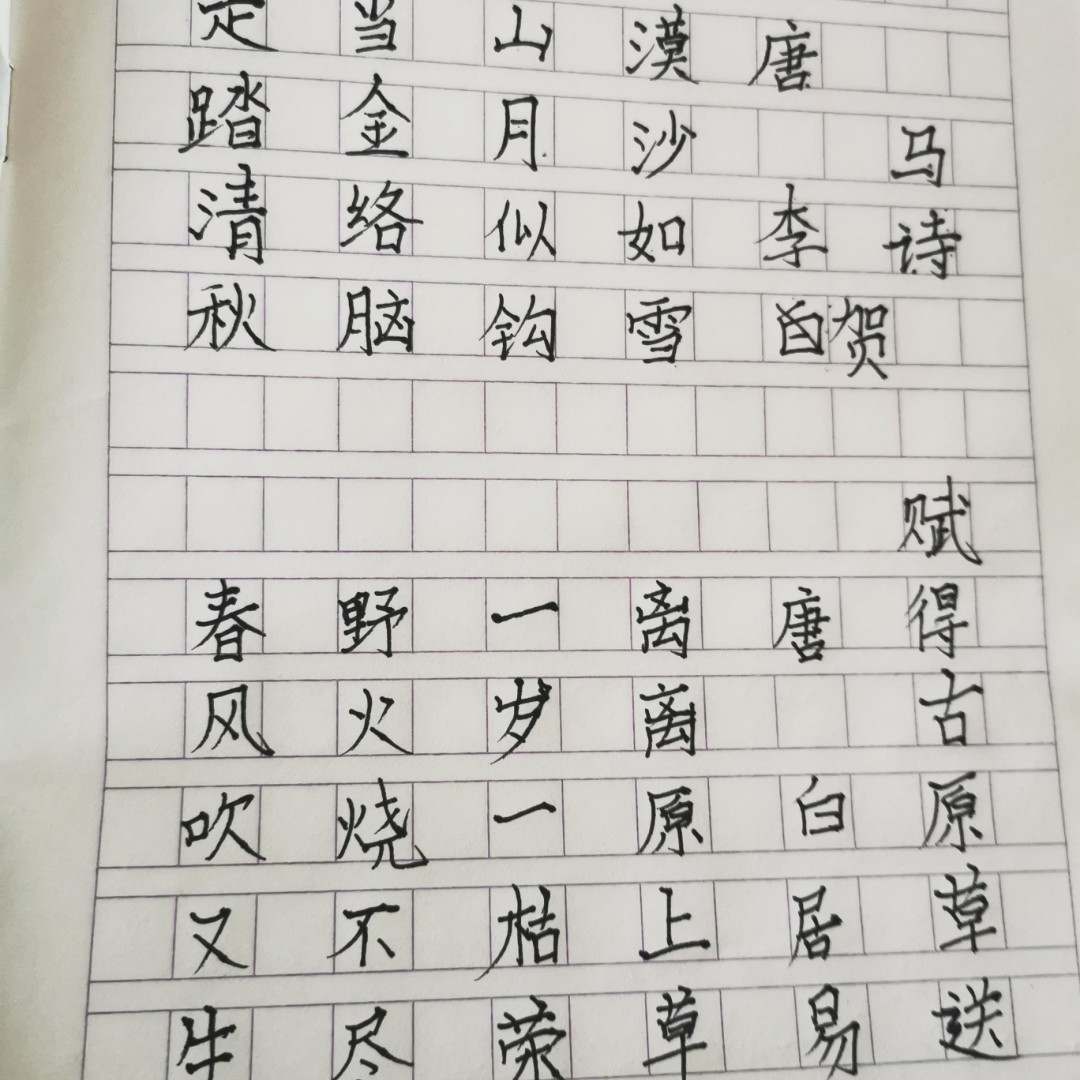 马诗
唐 李贺
漠沙如雪
山月似钩
当金络脑
走踏清秋
赋得古原草送
唐 白居易
离离原上草
一岁一枯荣
野火烧不尽
春风吹又生